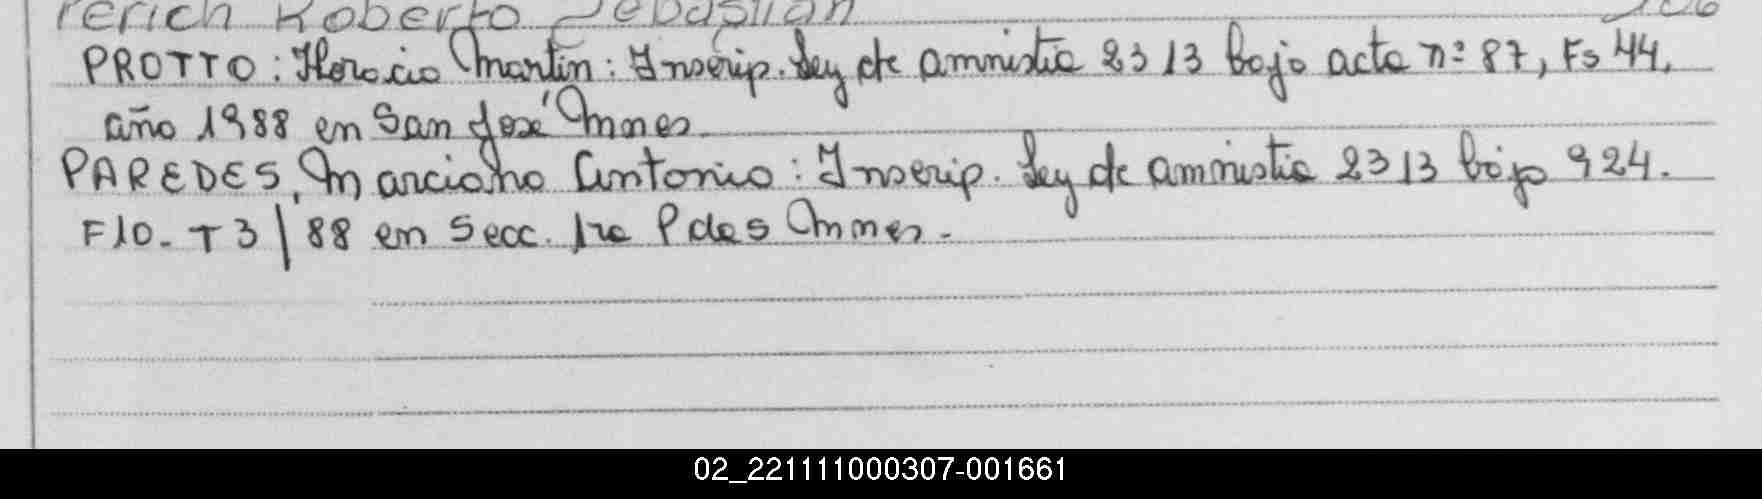 Perich Roberto Sebastian 106
PROTTO: Horacio Martín: Inscrip. Ley de amnistia 2313 bajo acta nº 87, Fs 44,
año 1988 en San José Mnes.
PAREDES, Marciano Antonio: Inscrip. Ley de amnistia 2313 bajo 924.
F10. T3/88 en Secc. 1ra Pdas Mnes.
02_221111000307-001661